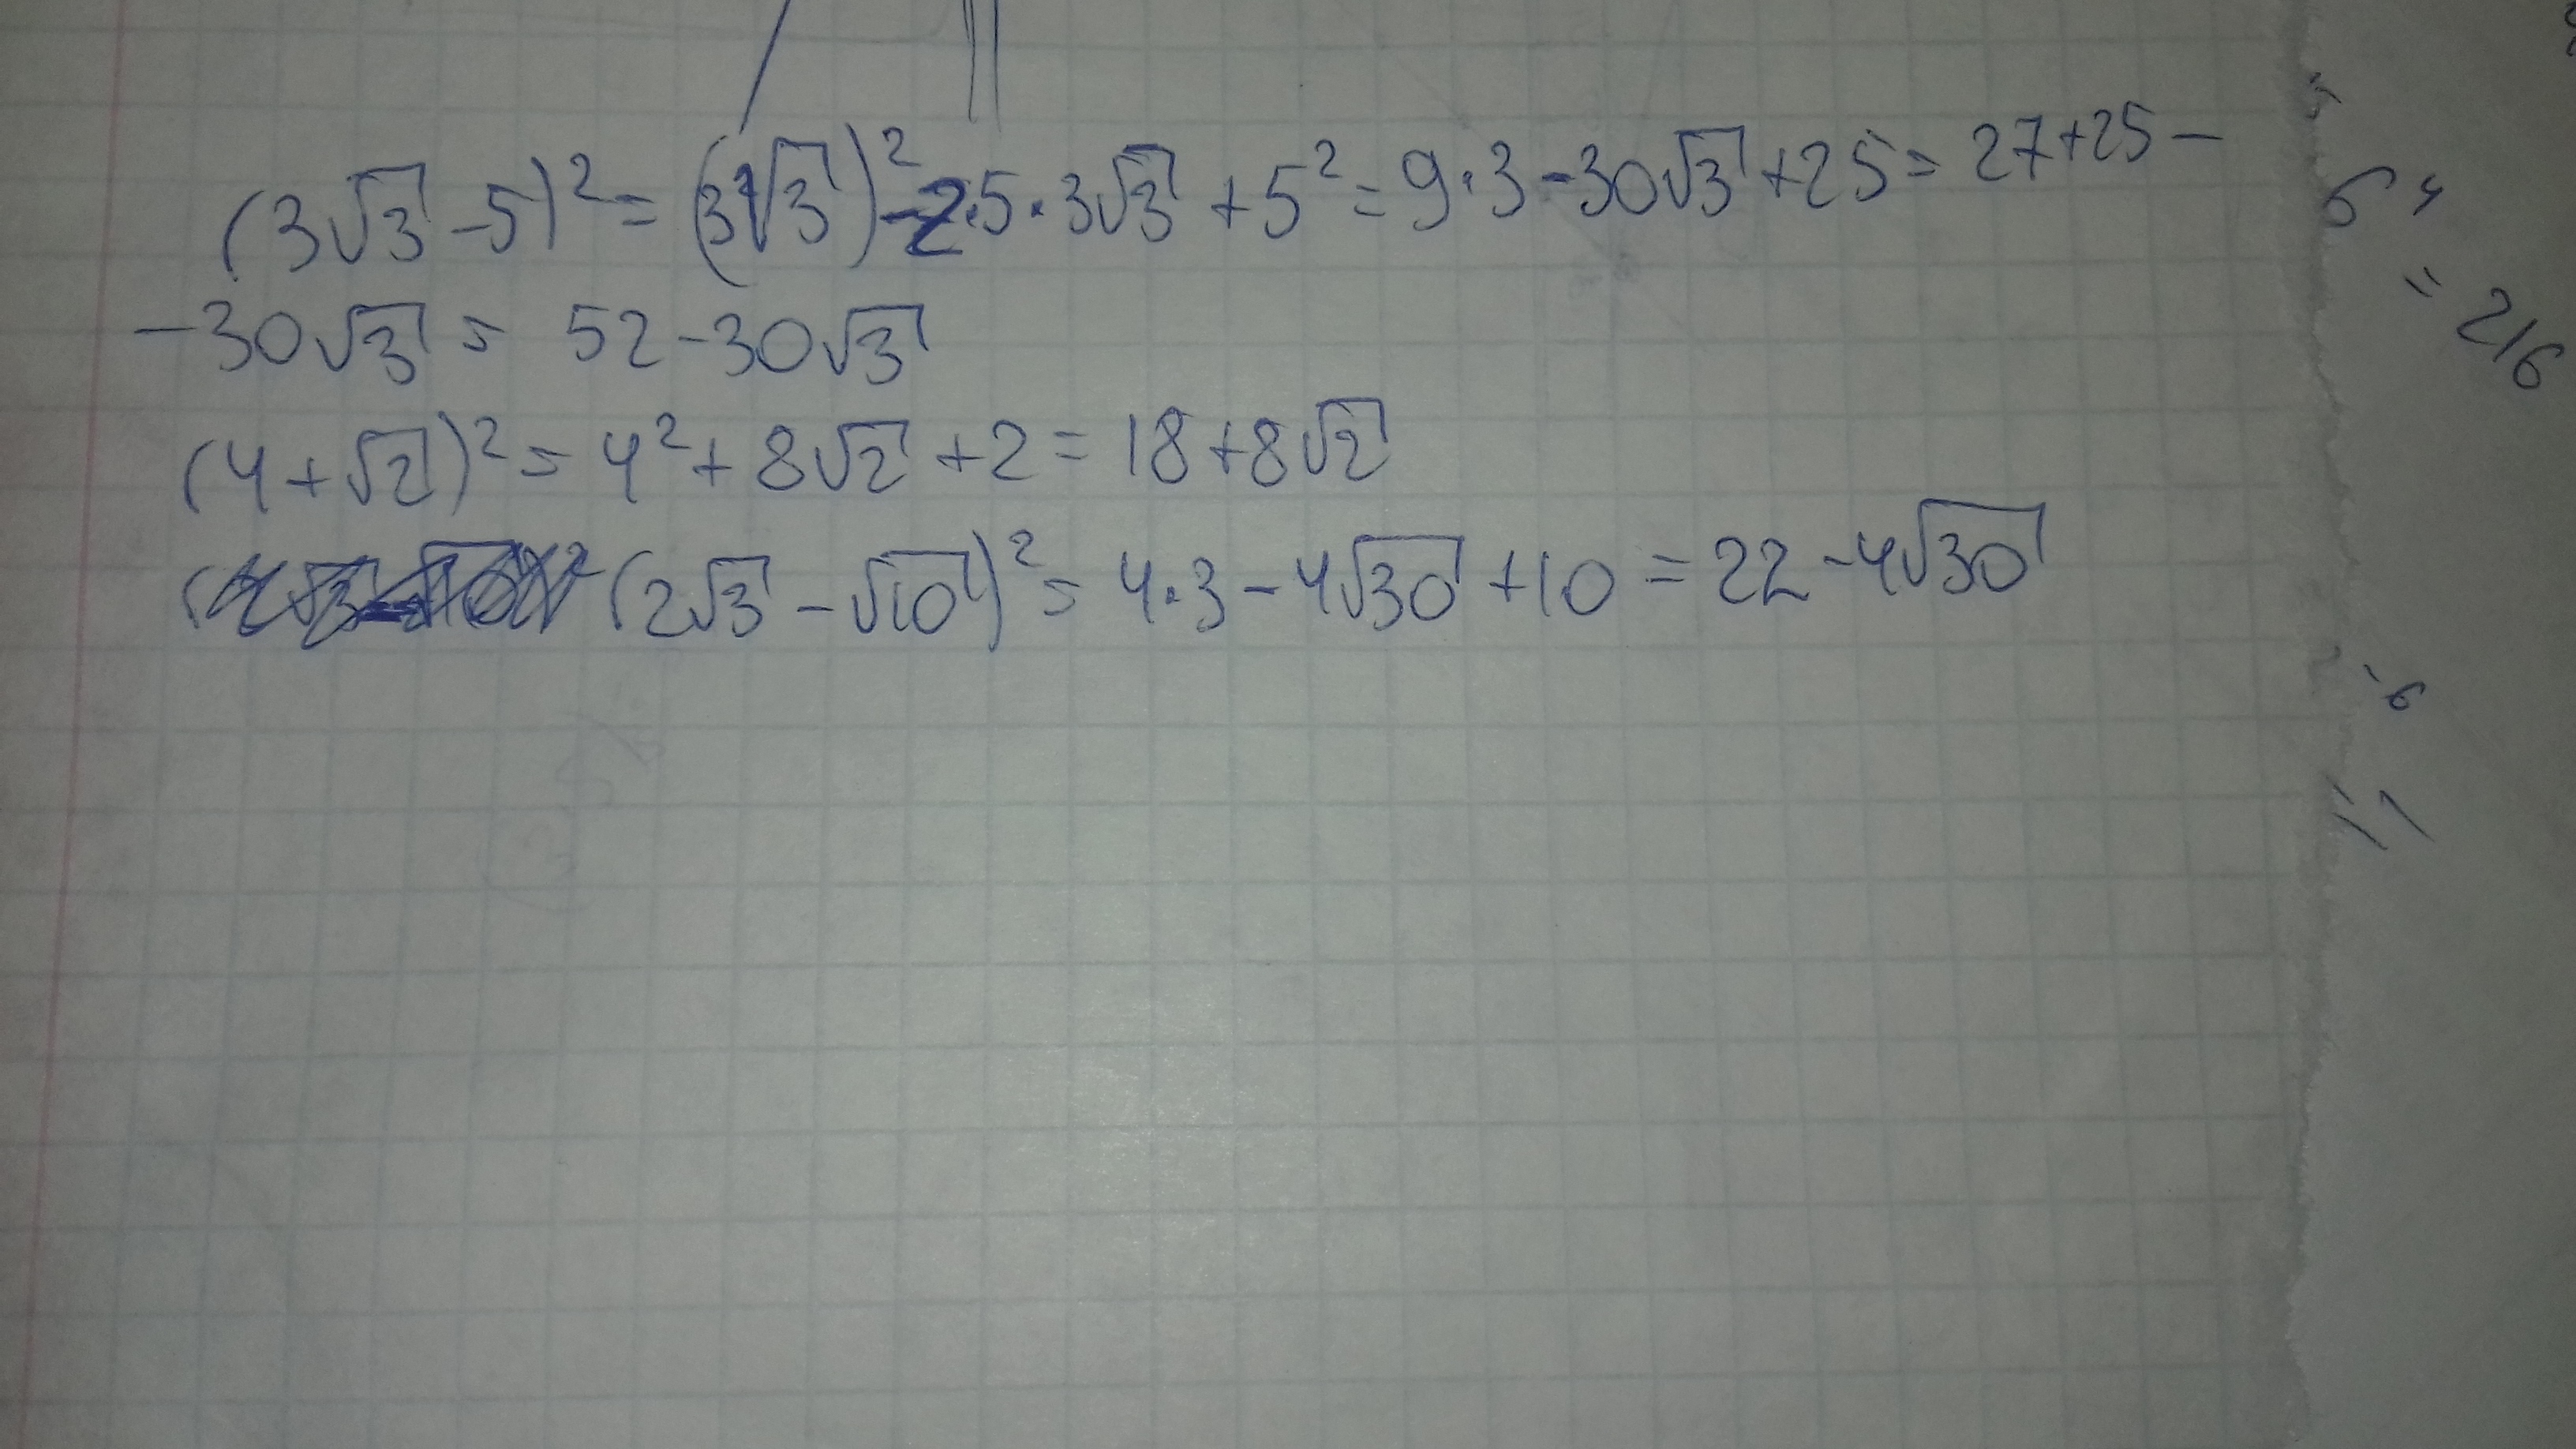 (3√3 - 5)² = (3√3)² - 2·5·3√3 + 5² = 9·3 - 30√3 + 25 = 27 + 25 -
- 30√3 = 52 - 30√3
(4 + √2)² = 4² + 8√2 + 2 = 18 + 8√2
(2√3 - √10)² = 4·3 - 4√30 + 10 = 22 - 4√30
= 216